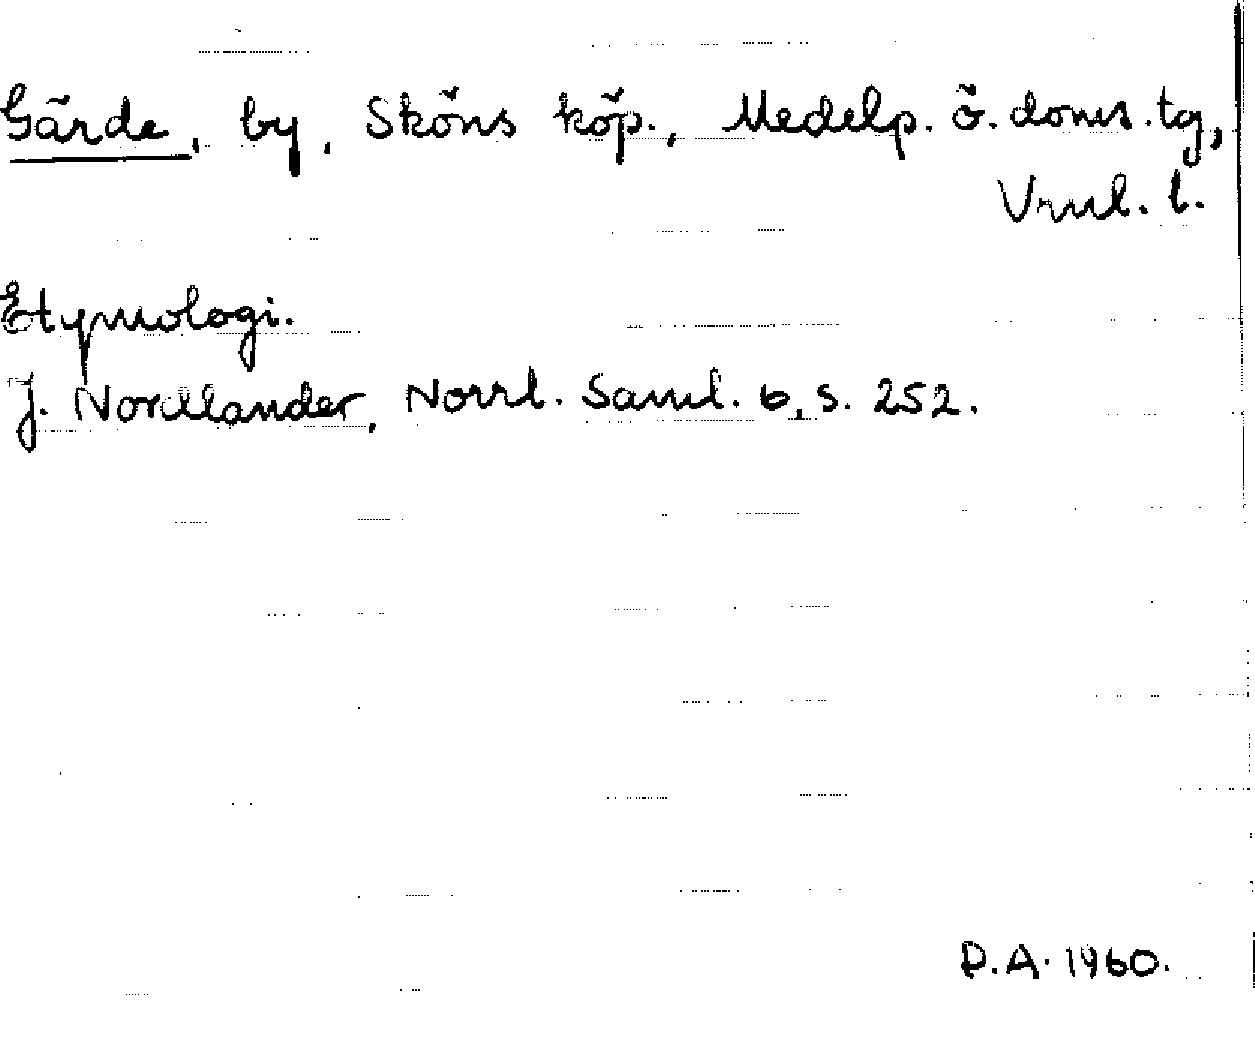 Gärde, by, Sköns köp., Medelp. ö. doms.tg,
Vrnl. l.
Etymologi.
J. Nordlander, Norrl. Saml. 6, s. 252.
D.A. 1960.